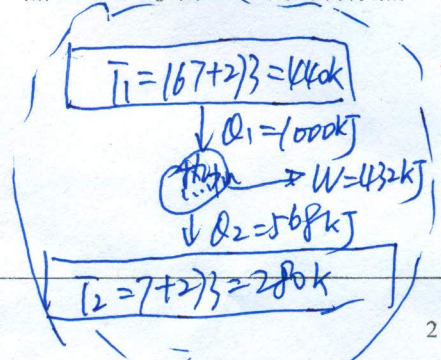 T₁=167+273=440K
Q₁=1000kJ
热机
W=432kJ
Q₂=568kJ
T₂=7+273=280K
2